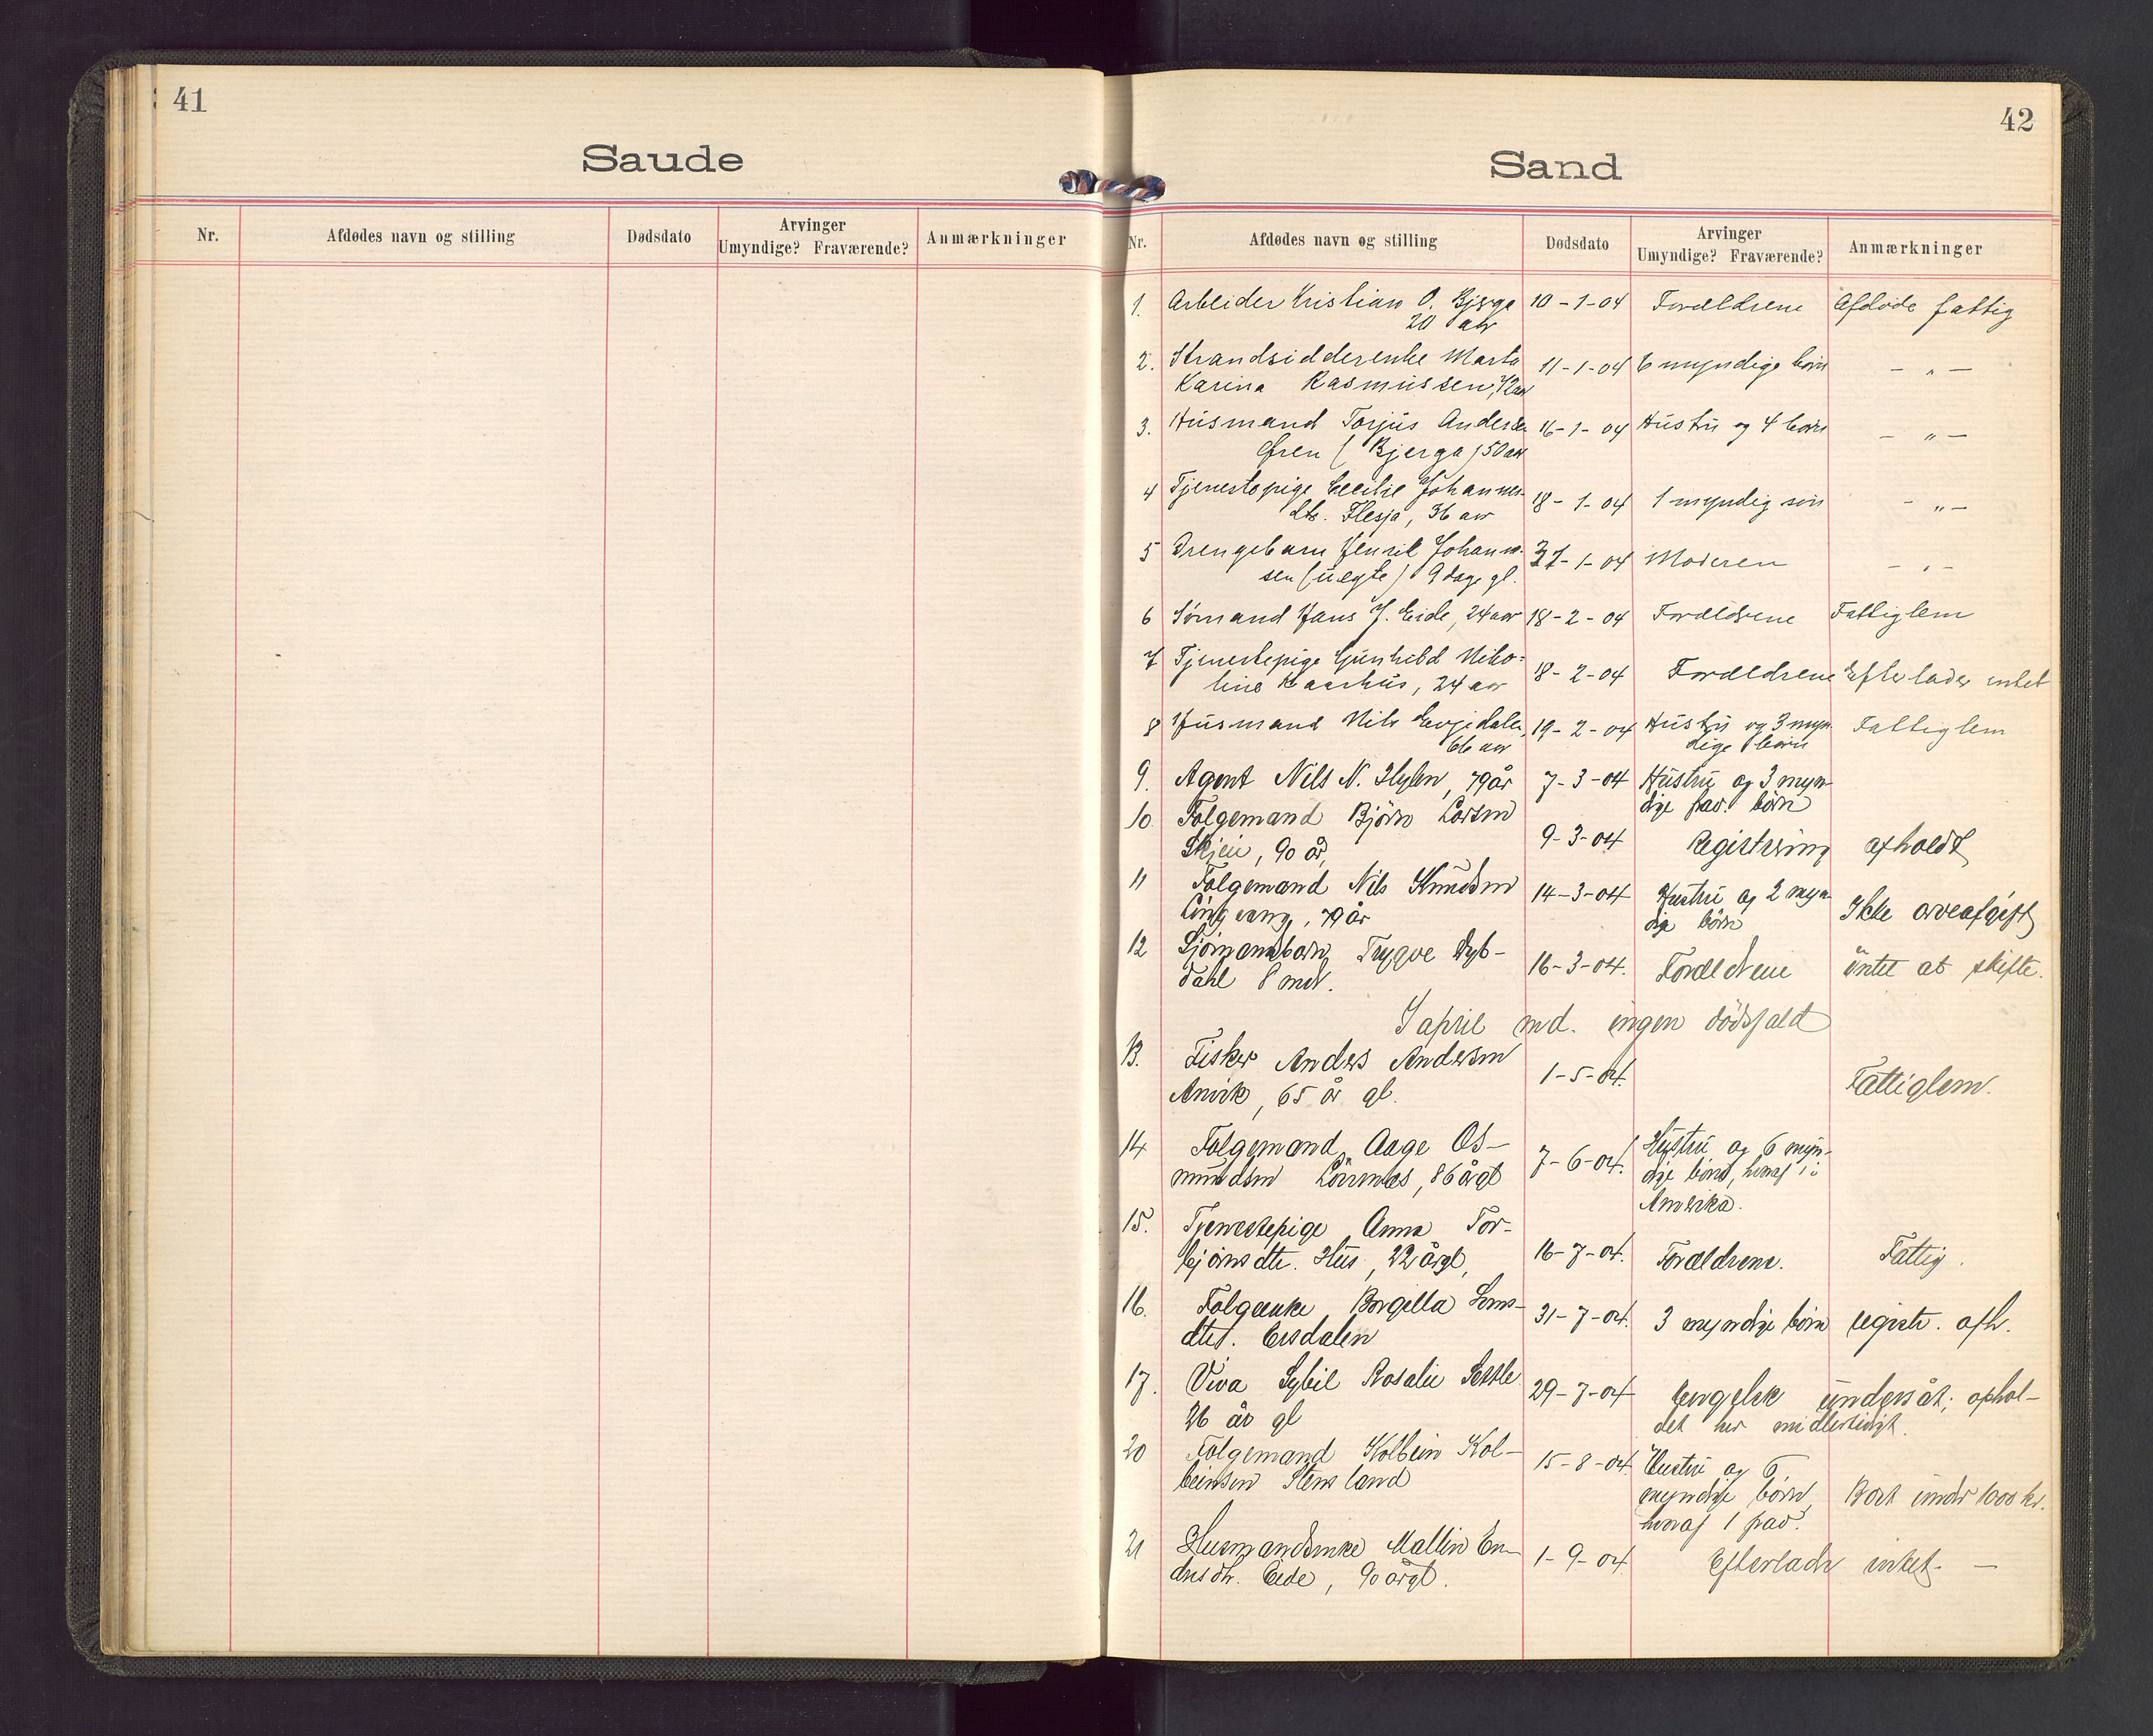 41
Saude
Nr.
Afdødes navn og stilling
Dødsdato
Arvinger
Umyndige? Fraværende?
Anmærkninger
42
Sand
Nr.
Afdødes navn og stilling
Dødsdato
Arvinger
Umyndige? Fraværende?
Anmærkninger
1. Arbeider Kristian O. Bjerga 10-1-04 Forældrene Afdøde fattig
20 aar
2. Strandsidderenke Marta 11-1-04 6 myndige børn - " -
Karina Rasmussen, 72 aar
3. Husmand Torjus Andersen 16-1-04 Hustru og 4 børn - " -
Øren (Bjerga) 50 aar
4 Tjenestepige Cecilie Johannes- 18-1-04 1 myndig søn - " -
dtr. Flesja, 36 aar
5 Drengebarn Henrik Johann- 31-1-04 Moderen - " -
sen (uægte) 9 dage gl.
6 Sømand Hans J. Eide, 24 aar 18-2-04 Forældrene Fattiglem
7 Tjenestepige Gunhild Niko- 18-2-04 Forældrene Efterlader intet
line Kaarhus, 24 aar
8 Husmand Nils 19-2-04 Hustru og 3 myn- Fattiglem
66 aar dige børn
9. Agent Nils N. Hylen, 79 år 7-3-04 Hustru og 3 myn-
dige frav. børn
10. Folgemand Björn Larsen 9-3-04 Registrering afholdt
Skjei, 90 år,
11 Folgemand Nils Knudsen 14-3-04 Hustru og 2 myn- Ikke arveafgift
Lingvang, 79 år dige børn
12 Sjömandsbarn Trygve Dyb- 16-3-04. Forældrene intet at skifte.
dahl 8 mdr.
I april md. ingen dödsfald
13. Fisker Anders Andersen 1-5-04. Fattiglem.
65 år gl.
14 Folgemand Aage Os- 7-6-04. Hustru og 6 myn-
mundsen Lönnes, 86 år gl dige børn, hvoraf 1 i
Amerika.
15. Tjenestepige Anna Tor- 16-7-04. Forældrene. Fattig.
björnsdtr. Hus, 22 år gl,
16. Folgeenke Borgilla 31-7-04. 3 myndige børn registr. afh.
dtr. Eisdalen
17. Viva Sybil Rosalie 29-7-04 Engelsk undersåt; ophol-
26 år gl det her midlertidigt.
20 Folgemand Kolbein Kol- 15-8-04. Hustru og 6
beinsen Stensland myndige børn, Bort under 1000 kr.
hvoraf 1 frav.
21 Husmandsenke Mallin En- 1-9-04. Efterlader intet. -
dresdtr. Eide, 90 år gl.